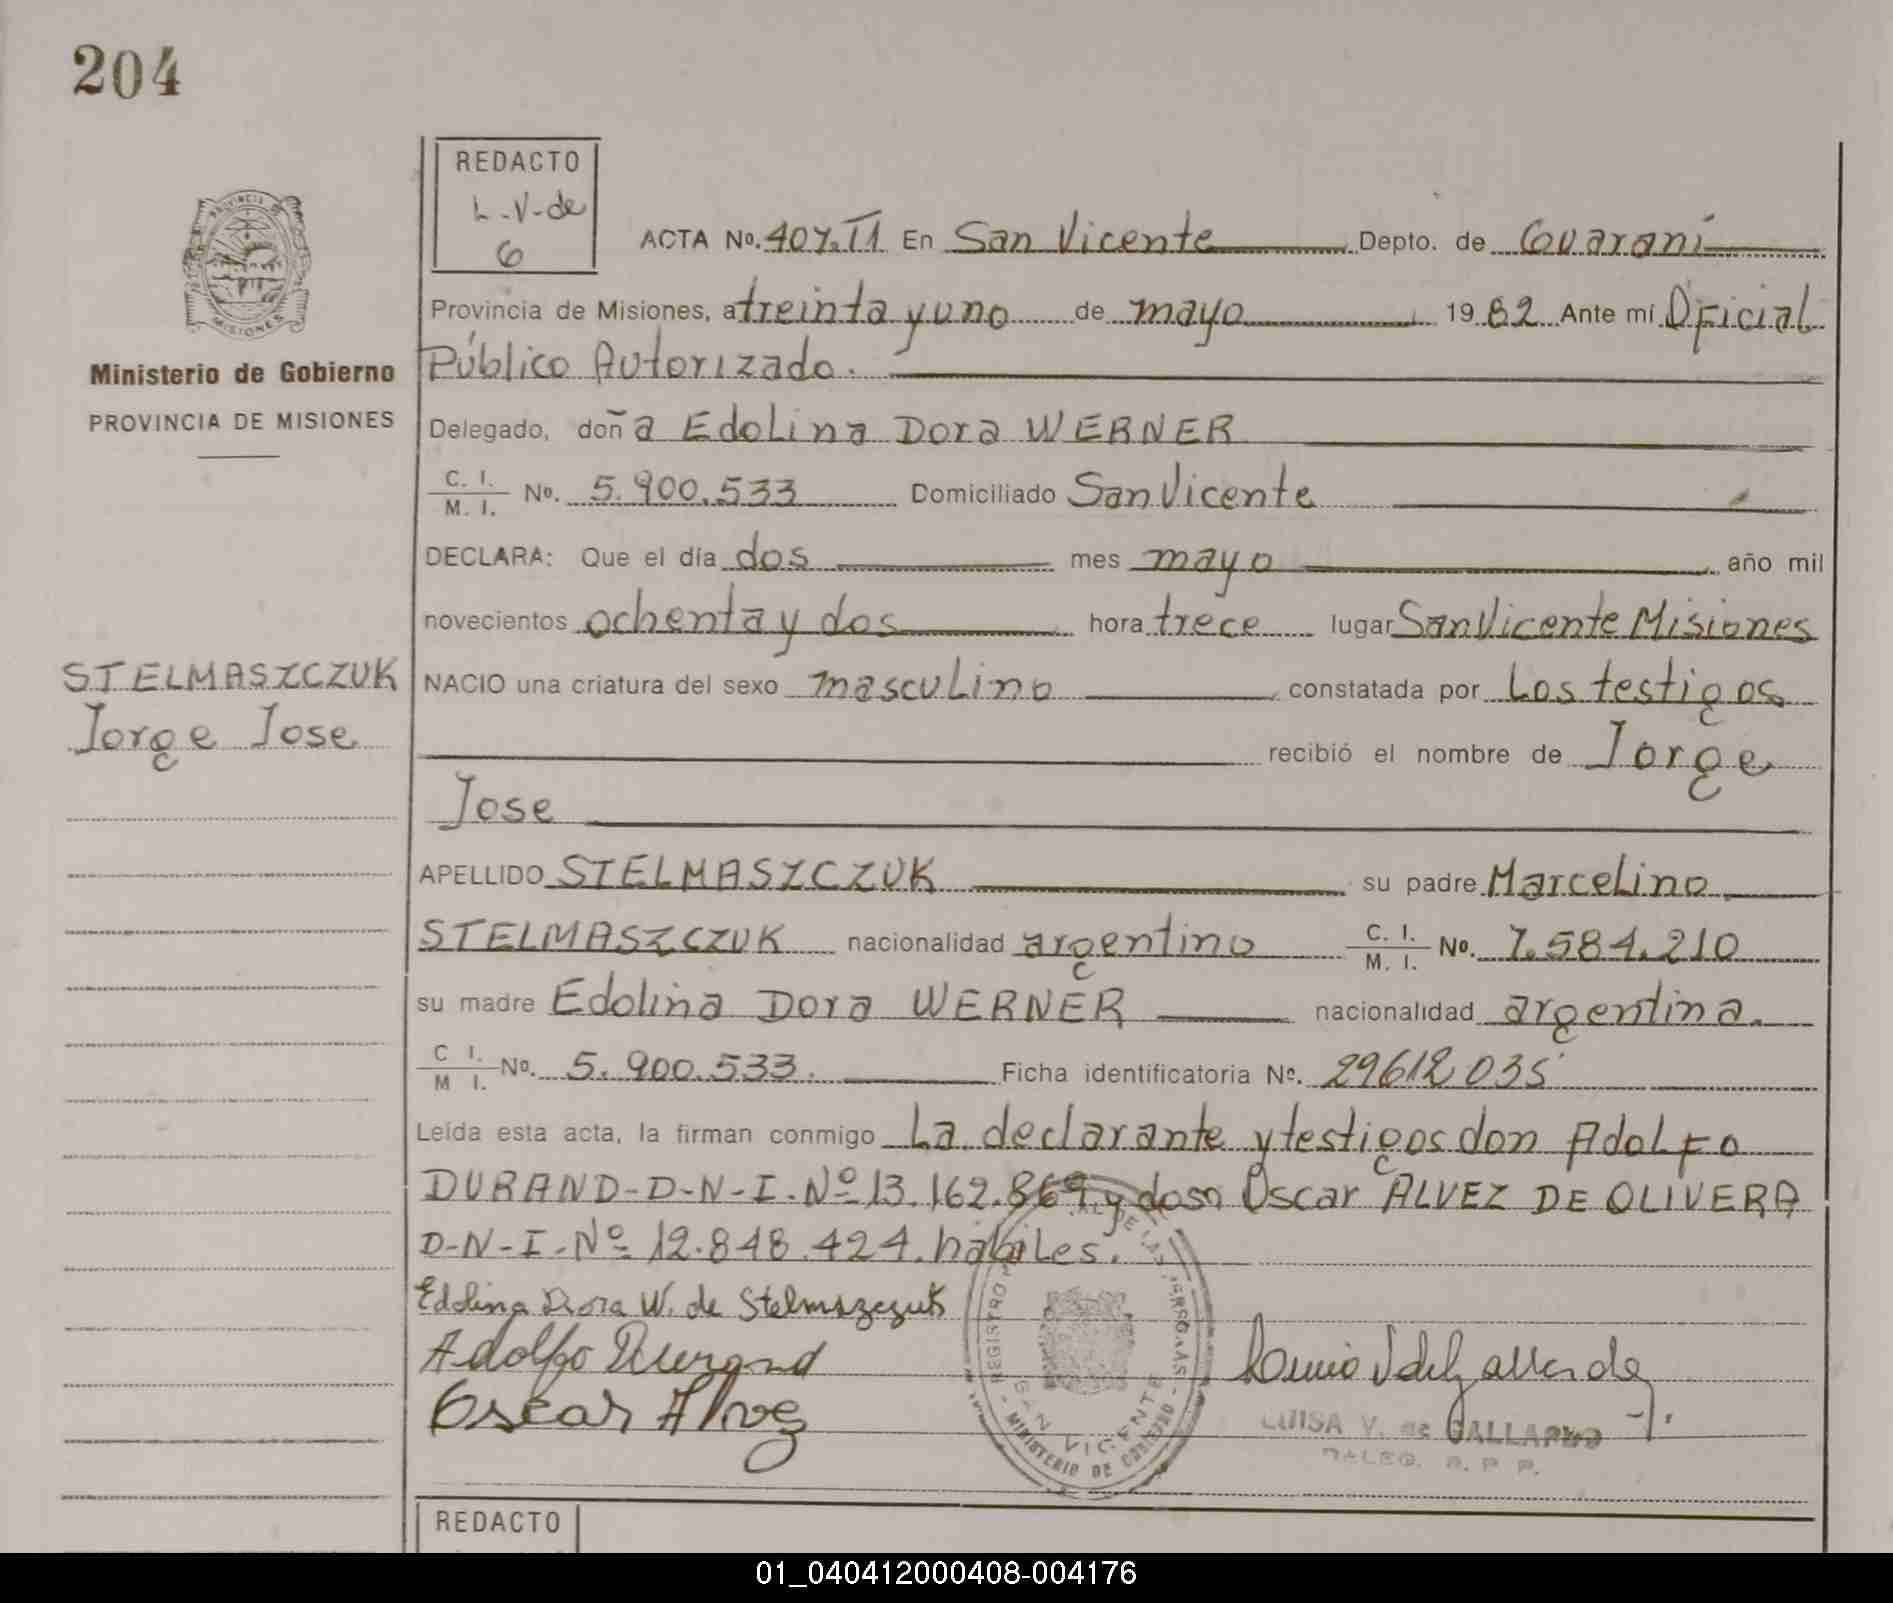 204
REDACTO
L-V-de
G
PROVINCIA DE
MISIONES
Ministerio de Gobierno
PROVINCIA DE MISIONES
ACTA No. 407.T1 En San Vicente Depto. de Guaraní
Provincia de Misiones, a treinta y uno de mayo 1982 Ante mí Oficial
Público Autorizado.
Delegado, doña Edolina Dora WERNER
C. I.
M. I. No. 5.900.533 Domiciliado San Vicente
DECLARA: Que el día dos mes mayo año mil
novecientos ochenta y dos hora trece lugar San Vicente Misiones
STELMASZCZUK
Jorge Jose
NACIO una criatura del sexo masculino constatada por Los testigos
recibió el nombre de Jorge
Jose
APELLIDO STELMASZCZUK su padre Marcelino
STELMASZCZUK nacionalidad argentino C. I.
M. I. No. 7.584.210
su madre Edolina Dora WERNER nacionalidad argentina.
C I.
M I. No. 5.900.533. Ficha identificatoria No. 29612035
Leída esta acta, la firman conmigo La declarante y testigos don Adolfo
DURAND-D-N-I-Nº 13.162.869 y don Oscar ALVEZ DE OLIVERA
D-N-I-Nº 12.848.424. habiles.
Edolina Dora W. de Stelmszczuk
Adolfo Durand
Oscar Alvez
REGISTRO DE LAS PERSONAS
SAN VICENTE
MINISTERIO DE GOBIERNO
LUISA V. de GALLARDO
DALEG. R. P. P.
REDACTO
01_040412000408-004176